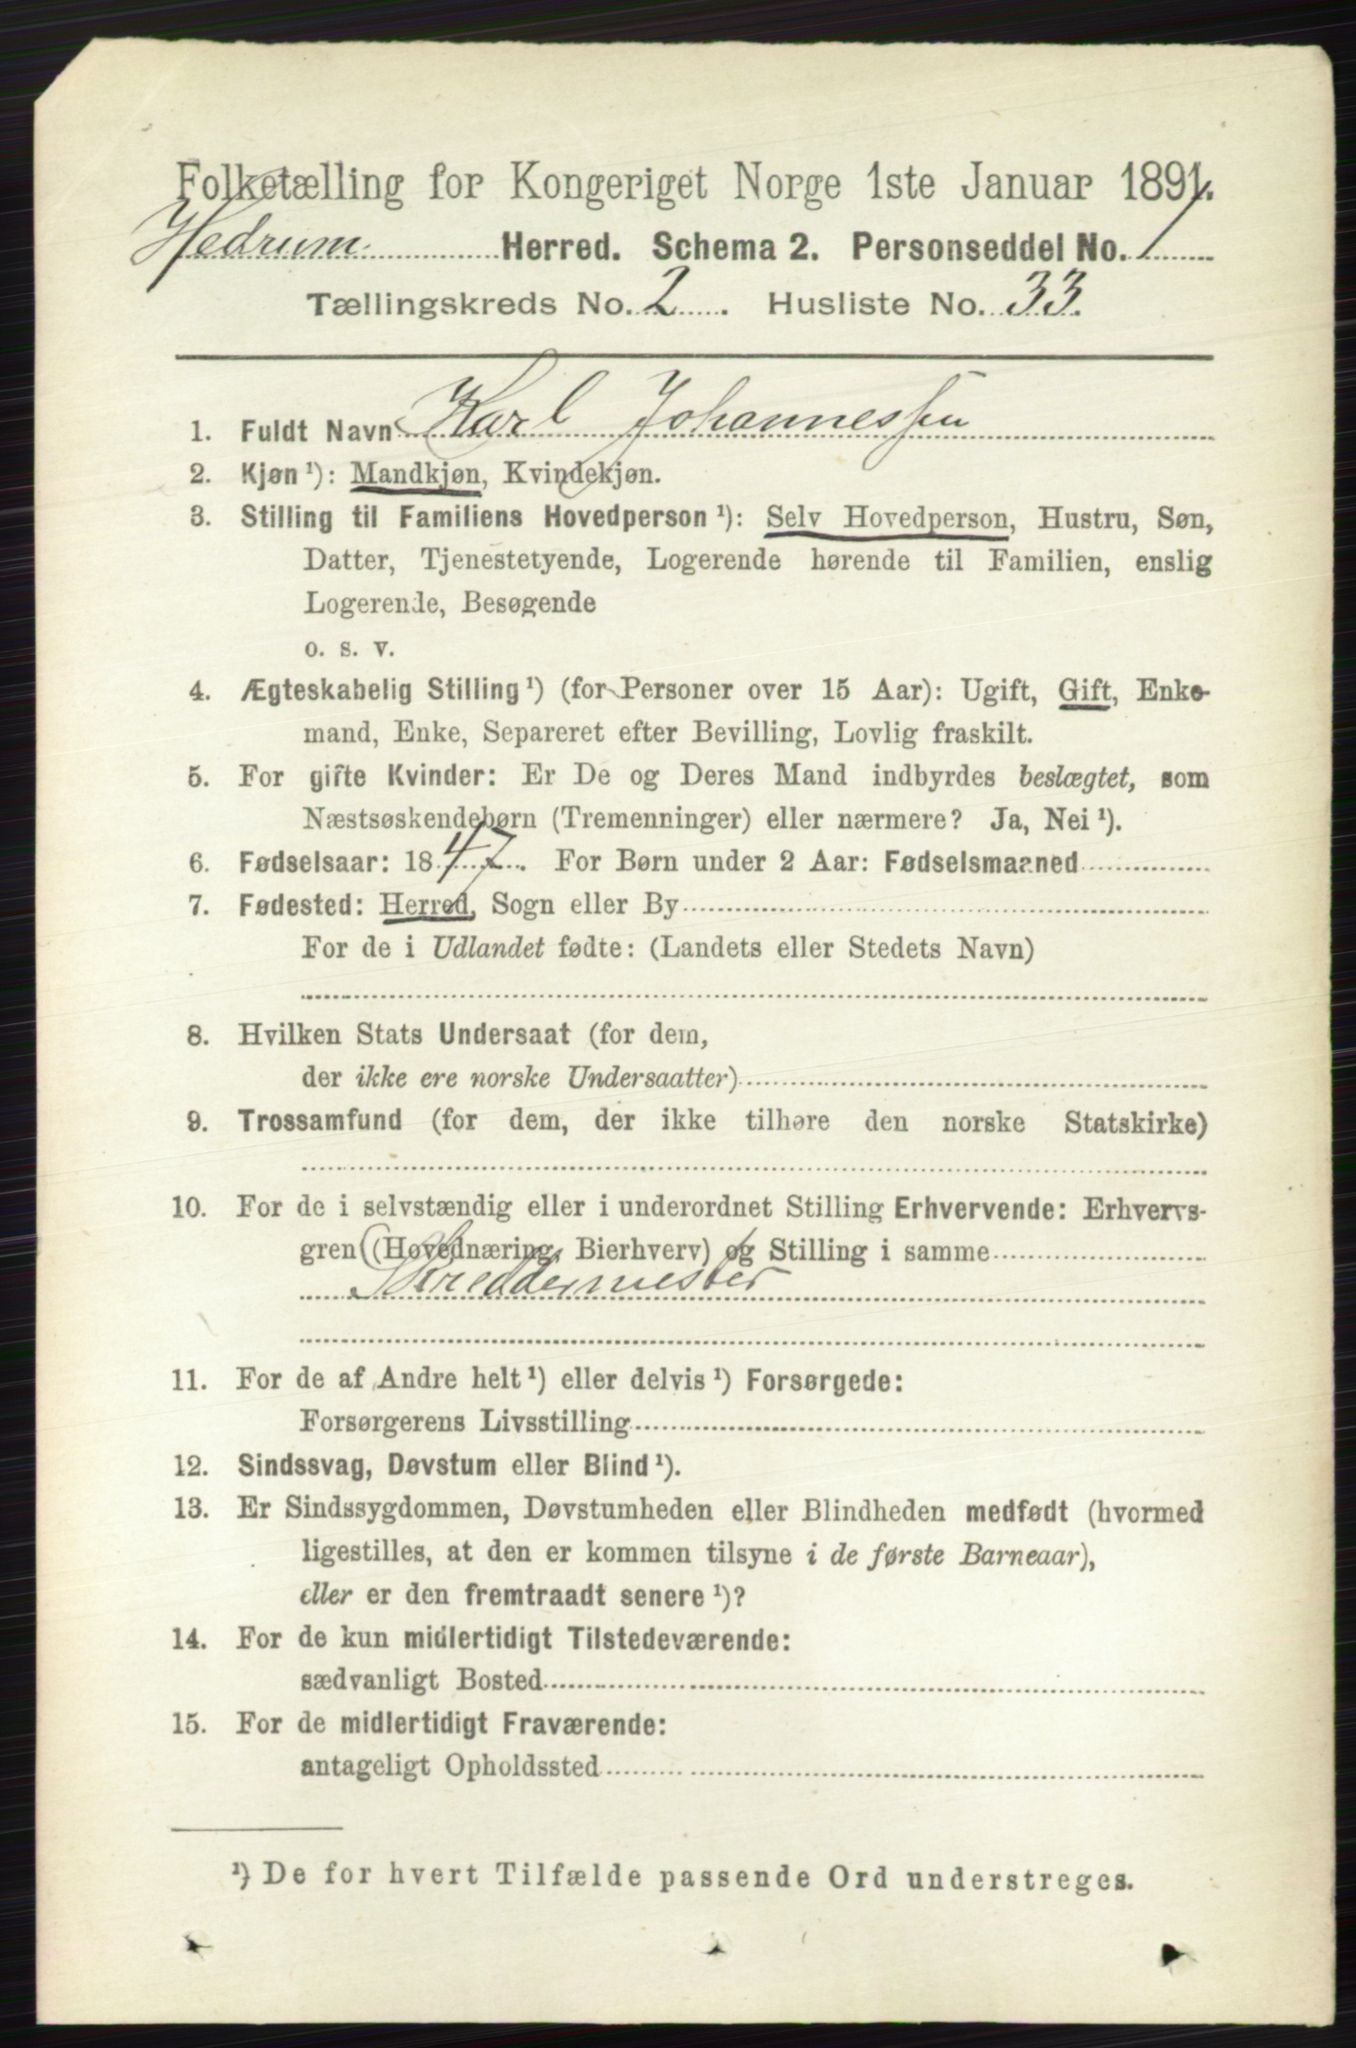 Folketælling for Kongeriget Norge 1ste Januar 1891.
Hedrum Herred. Schema 2. Personseddel No. 1
Tællingskreds No. 2. Husliste No. 33.
1. Fuldt Navn Karl Johannessen
2. Kjøn ¹): Mandkjøn, Kvindekjøn.
3. Stilling til Familiens Hovedperson ¹): Selv Hovedperson, Hustru, Søn,
Datter, Tjenestetyende, Logerende hørende til Familien, enslig
Logerende, Besøgende
o. s. v.
4. Ægteskabelig Stilling ¹) (for Personer over 15 Aar): Ugift, Gift, Enke-
mand, Enke, Separeret efter Bevilling, Lovlig fraskilt.
5. For gifte Kvinder: Er De og Deres Mand indbyrdes beslægtet, som
Næstsøskendebørn (Tremenninger) eller nærmere? Ja, Nei ¹).
6. Fødselsaar: 1847. For Børn under 2 Aar: Fødselsmaaned
7. Fødested: Herred, Sogn eller By
For de i Udlandet fødte: (Landets eller Stedets Navn)
8. Hvilken Stats Undersaat (for dem,
der ikke ere norske Undersaatter)
9. Trossamfund (for dem, der ikke tilhøre den norske Statskirke)
10. For de i selvstændig eller i underordnet Stilling Erhvervende: Erhvervs-
gren (Hovednæring, Bierhverv) og Stilling i samme
Skreddermester
11. For de af Andre helt ¹) eller delvis ¹) Forsørgede:
Forsørgerens Livsstilling
12. Sindssvag, Døvstum eller Blind ¹).
13. Er Sindssygdommen, Døvstumheden eller Blindheden medfødt (hvormed
ligestilles, at den er kommen tilsyne i de første Barneaar),
eller er den fremtraadt senere ¹)?
14. For de kun midlertidigt Tilstedeværende:
sædvanligt Bosted
15. For de midlertidigt Fraværende:
antageligt Opholdssted
¹) De for hvert Tilfælde passende Ord understreges.